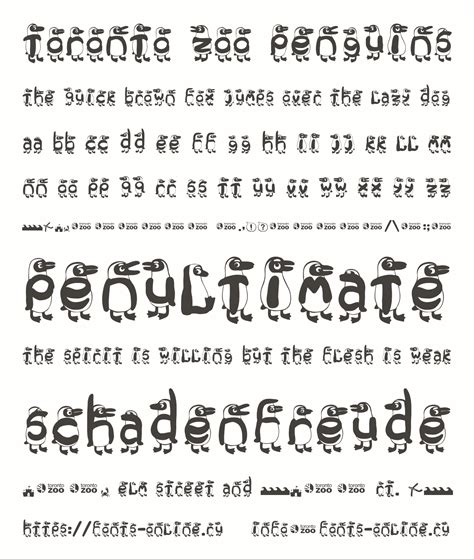 toronto zoo penguins
the quick brown fox jumps over the lazy dog
aa bb cc dd ee ff gg hh ii jj kk LL mm
nn oo pp qq rr ss tt uu vv ww xx yy zz
toronto zoo toronto zoo .,!? toronto zoo /\ toronto zoo :;
penuLtimate
the spirit is wiLLing but the fLesh is weak
schadenfreude
toronto zoo toronto zoo eLm street and toronto zoo toronto zoo ct.
https://fonts-onLine.ru info fonts-onLine.ru